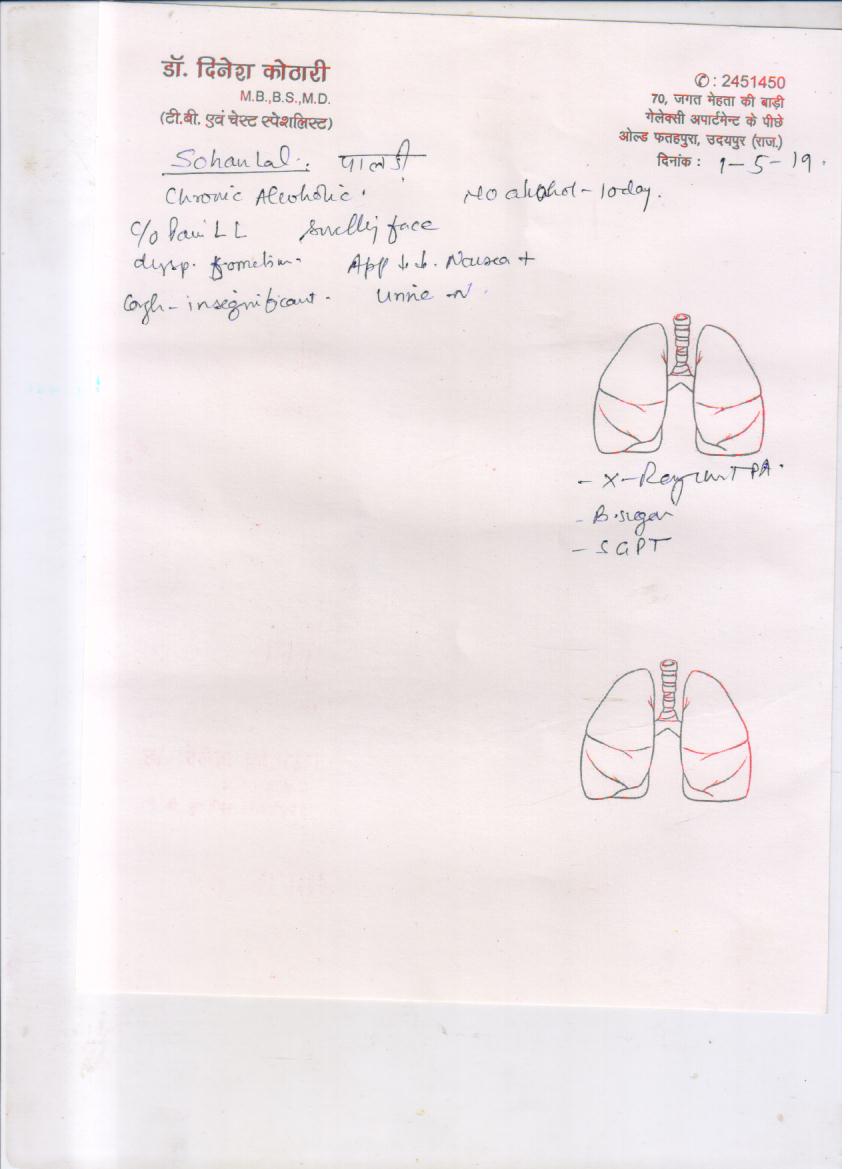 डॉ. दिनेश कोठारी
M.B.,B.S.,M.D.
(टी.बी. एवं चेस्ट स्पेशलिस्ट)
✆: 2451450
70, जगत मेहता की बाड़ी
गेलेक्सी अपार्टमेन्ट के पीछे
ओल्ड फतहपुरा, उदयपुर (राज.)
दिनांक : 1-5-19.
Sohan Lal. पालडी
Chronic Alcoholic. No alcohol - Today.
C/o Pain LL Swelling face
dysp. App ↓↓. Nausea +
Cough - insignificant. Urine - N
- X-Ray PA.
- B. sugar
- SGPT